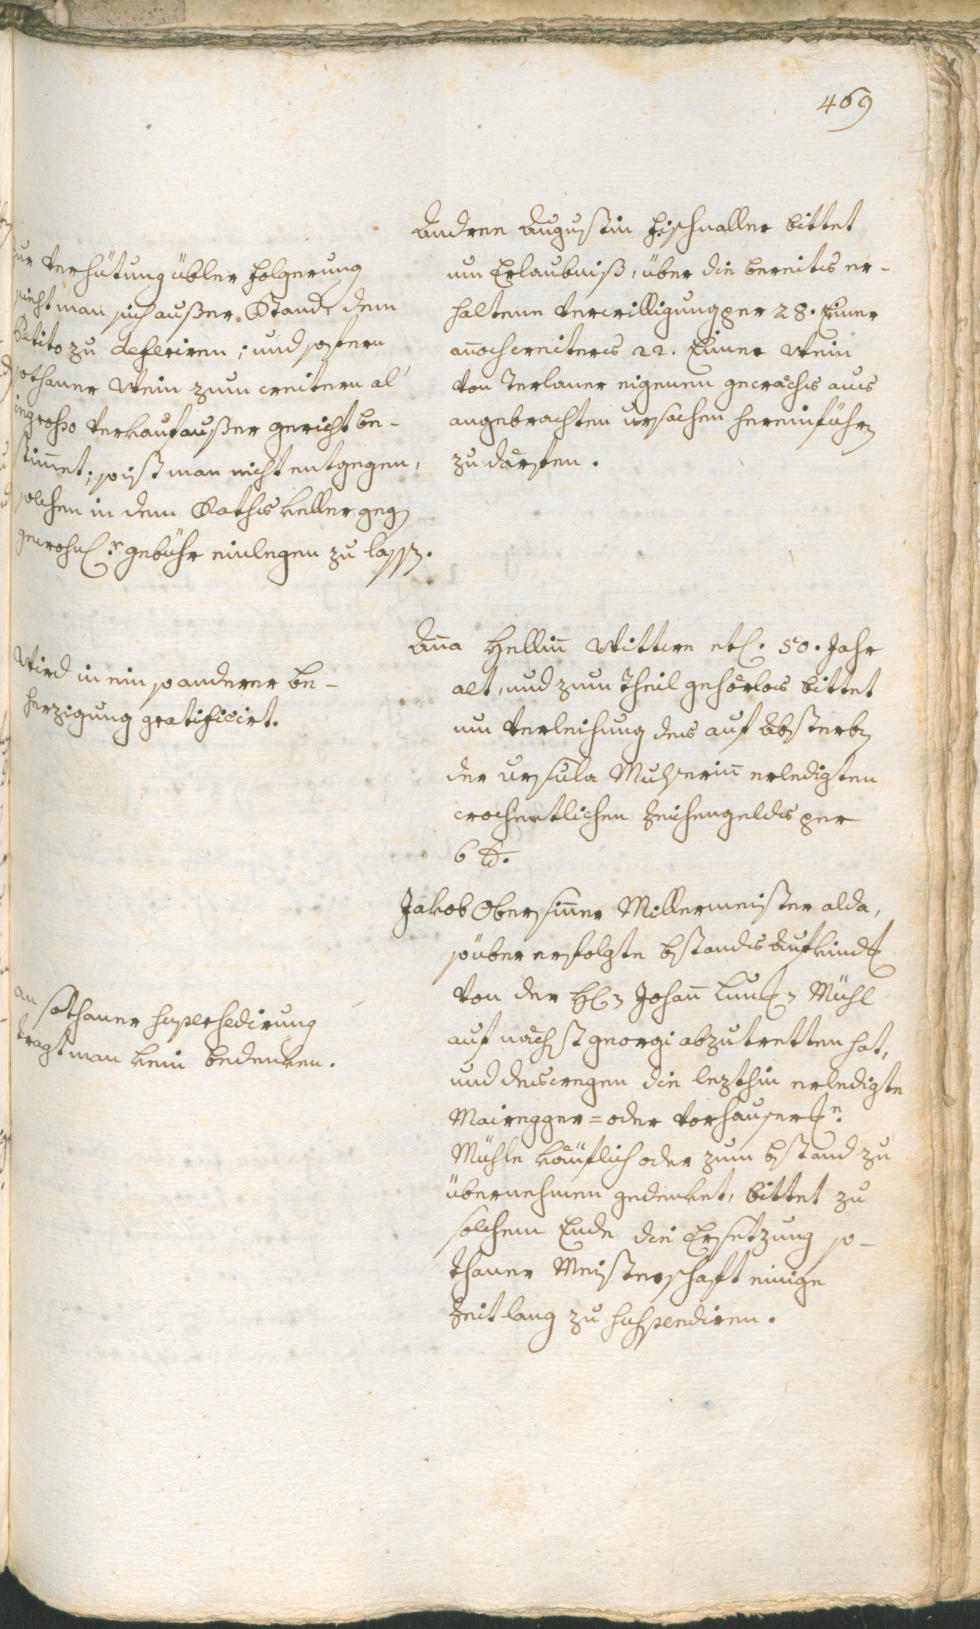 469
Andree Augustin Fischnaller bittet
um Erlaubniß, über die bereits er-
haltene Verwilligung per 28. Eimer
annoch weiters 22. Eimer Wein
von Terlaner eigenem gewächs aus
angebrachten ursachen hereinführen
zu därfen.
zur Verhütung übler Folgerung
sieht man sich außer Stand, dem
Petito zu deferiren; und sofern
sothaner Wein zum weitern al'
ingrosso Verkauf außer gericht be-
stimmet; so ist man nicht entgegen,
solchen in dem Raths keller gegen
gewohnl.r gebühr einlegen zu lassen.
Anna Hellin Wittwe etl. 50. Jahr
alt, und zum Theil gehörlos bittet
um Verleihung des auf Absterben
der Ursula Muhserin erledigten
wochentlichen Zeichengelds per
6 kr.
Wird in ein so anderer be-
herzigung gratificirt.
Jakob Obersinner Millermeister alda,
so über erfolgte bstands Aufkind
von der H. Johann Mühl
auf nächst georgi abzutretten hat,
und deswegen die lezthin erledigte
Mairegger= oder Vorhauser
Mühle käuflich oder zum bstand zu
übernehmen gedenket, bittet zu
solchem Ende die Ersetzung so-
thaner Meisterschaft einige
Zeit lang zu suspendiren.
an sothaner supersedirung
tragt man kein bedenken.